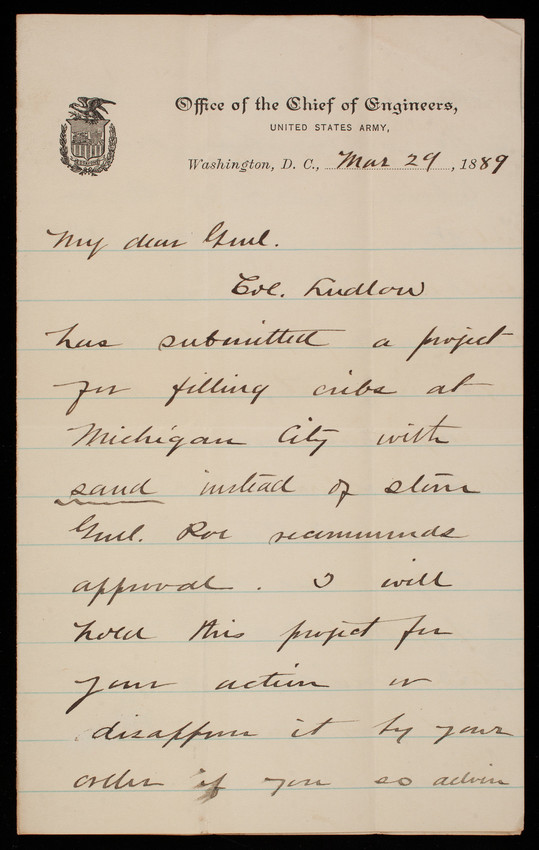 Office of the Chief of Engineers,
UNITED STATES ARMY,
Washington, D. C., Mar 29, 1889
My dear Genl.
Col. Ludlow
has submitted a project
for filling cribs at
Michigan City with
sand instead of stone
Genl. Poe recommends
approval. I will
hold this project for
your action or
disapprove it by your
order if you so advise